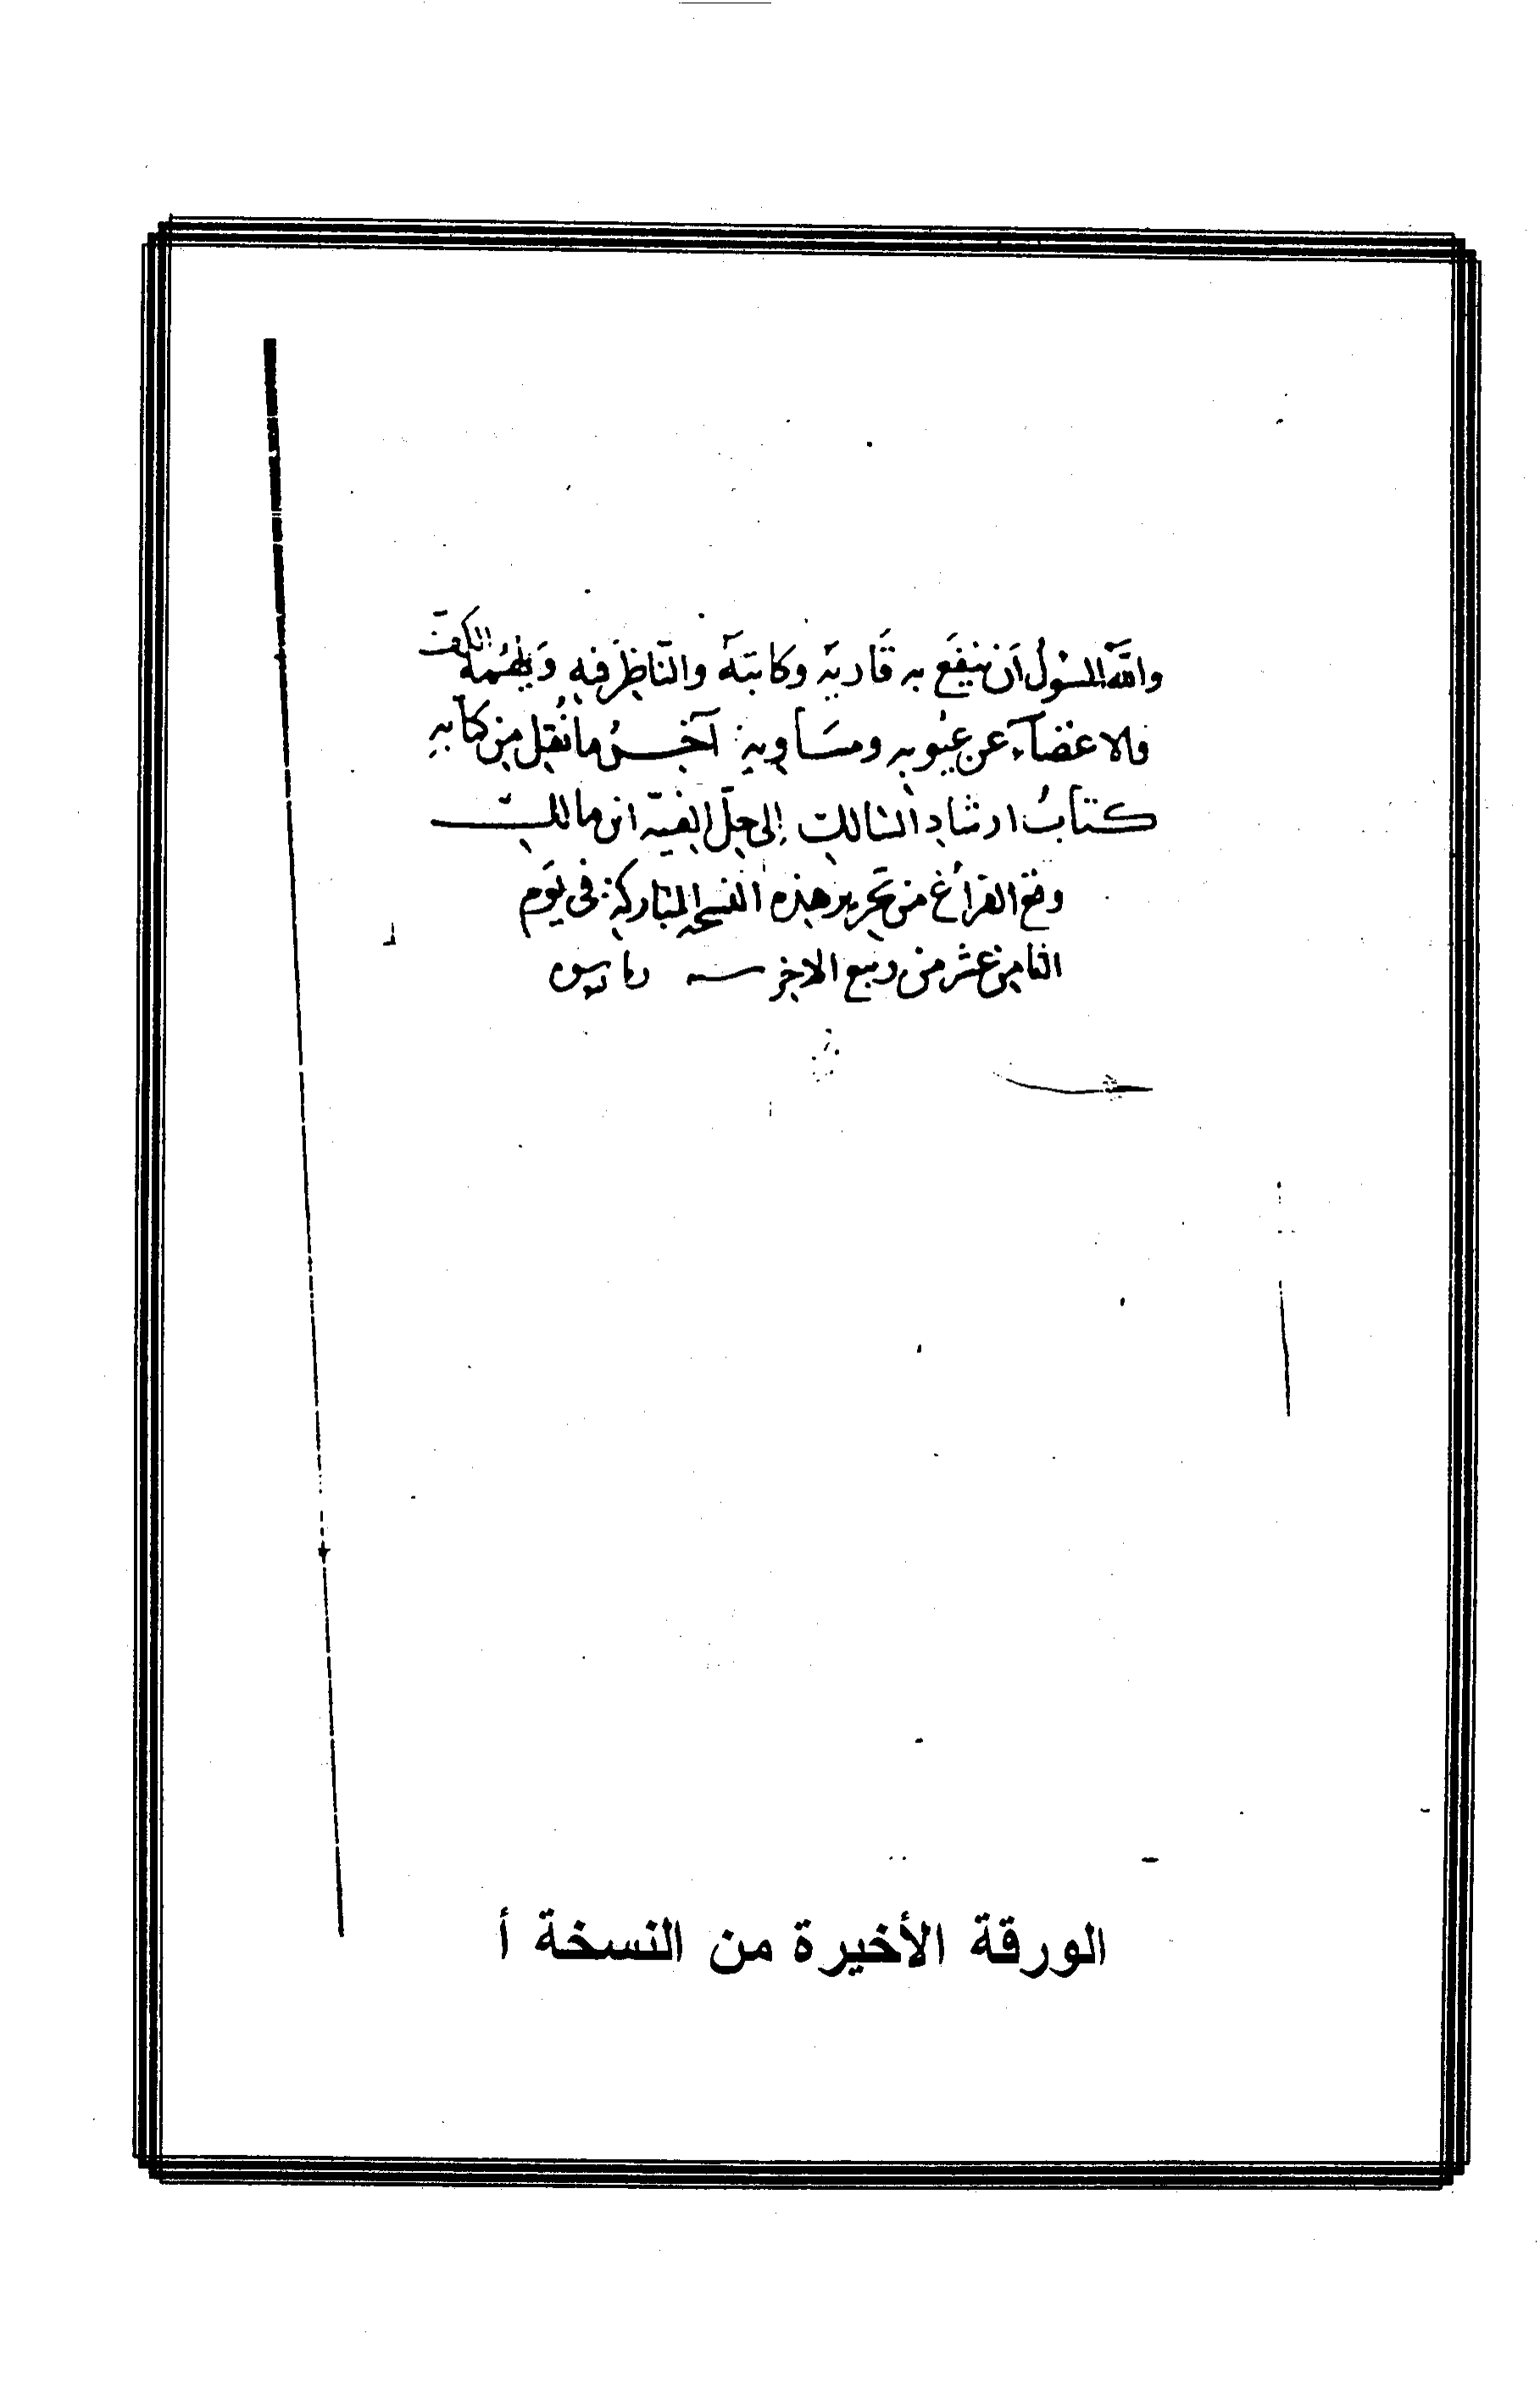 والله المسؤل أن ينفع به قاريه وكاتبه والناظر فيه ويلهمه الكف
والاغضاء عن عيوبه ومساويه آخر ما نقل من كتابه
كتاب ارشاد السالك إلى حل الفية ابن مالك
وقع الفراغ من تحرير هذه النسخة المباركة فى يوم
الثامن عشر من ربيع الاخر سنة
الورقة الأخيرة من النسخة أ